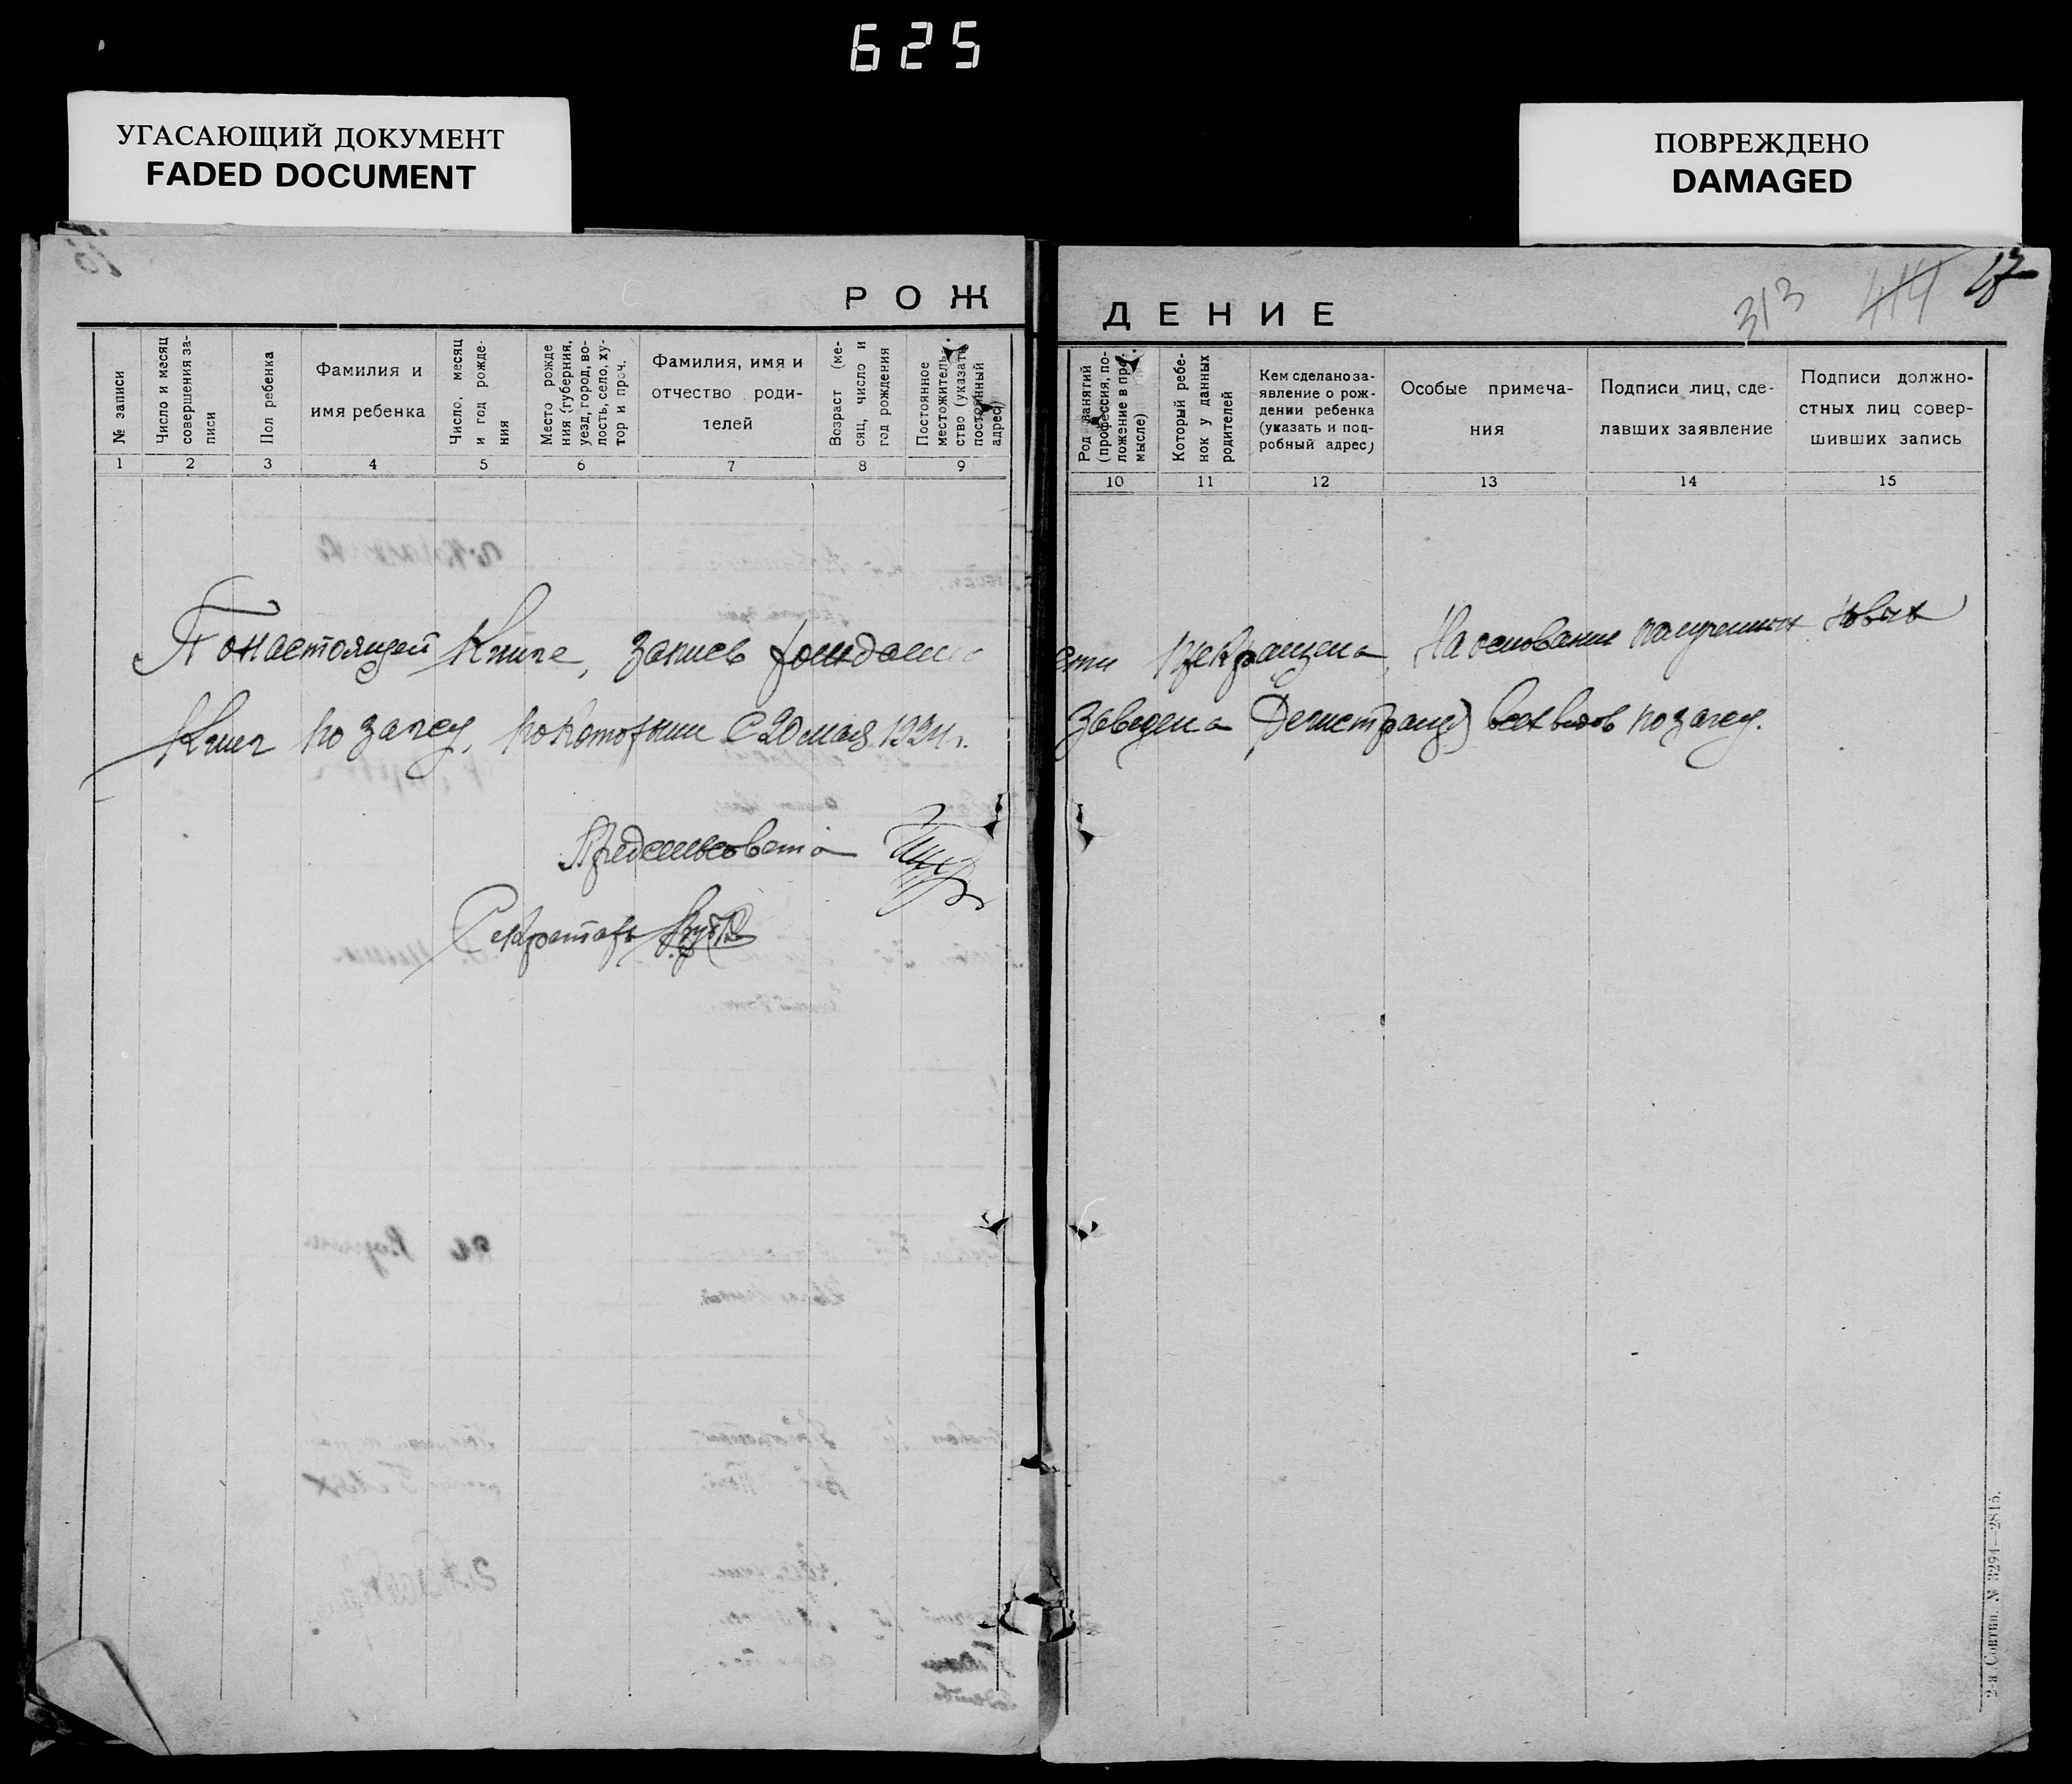 625
УГАСАЮЩИЙ ДОКУМЕНТ
FADED DOCUMENT
ПОВРЕЖДЕНО
DAMAGED
РОЖДЕНИЕ
313 414 17
№ записи
Число и месяц совершения записи
Пол ребенка
Фамилия и
имя ребенка
Число, месяц
и год рожде-
ния
Место рожде
ния (губерния,
уезд, город, во-
лость, село, ху-
тор и проч.
Фамилия, имя и
отчество роди-
телей
Возраст (ме-
сяц, число и
год рождения
Постоянное
местожитель-
ство (указать
постоянный
адрес)
Род занятий
(профессия, по-
ложение в про-
мысле)
Который ребе-
нок у данных
родителей
Кем сделано за-
явление о рож-
дении ребенка
(указать и под-
робный адрес)
Особые примеча-
ния
Подписи лиц, сде-
лавших заявление
Подписи должно-
стных лиц совер-
шивших запись
1 2 3 4 5 6 7 8 9 10 11 12 13 14 15
По настоящей Книге, запись рождаемости прекращена, На основании полученных новых
Книг по загсу, по которым с 20 мая 1924 г. заведена Регистрац) всех видов по загсу.
Предсельсовета
Секретарь
2-я Совтип. № 3294—2815.